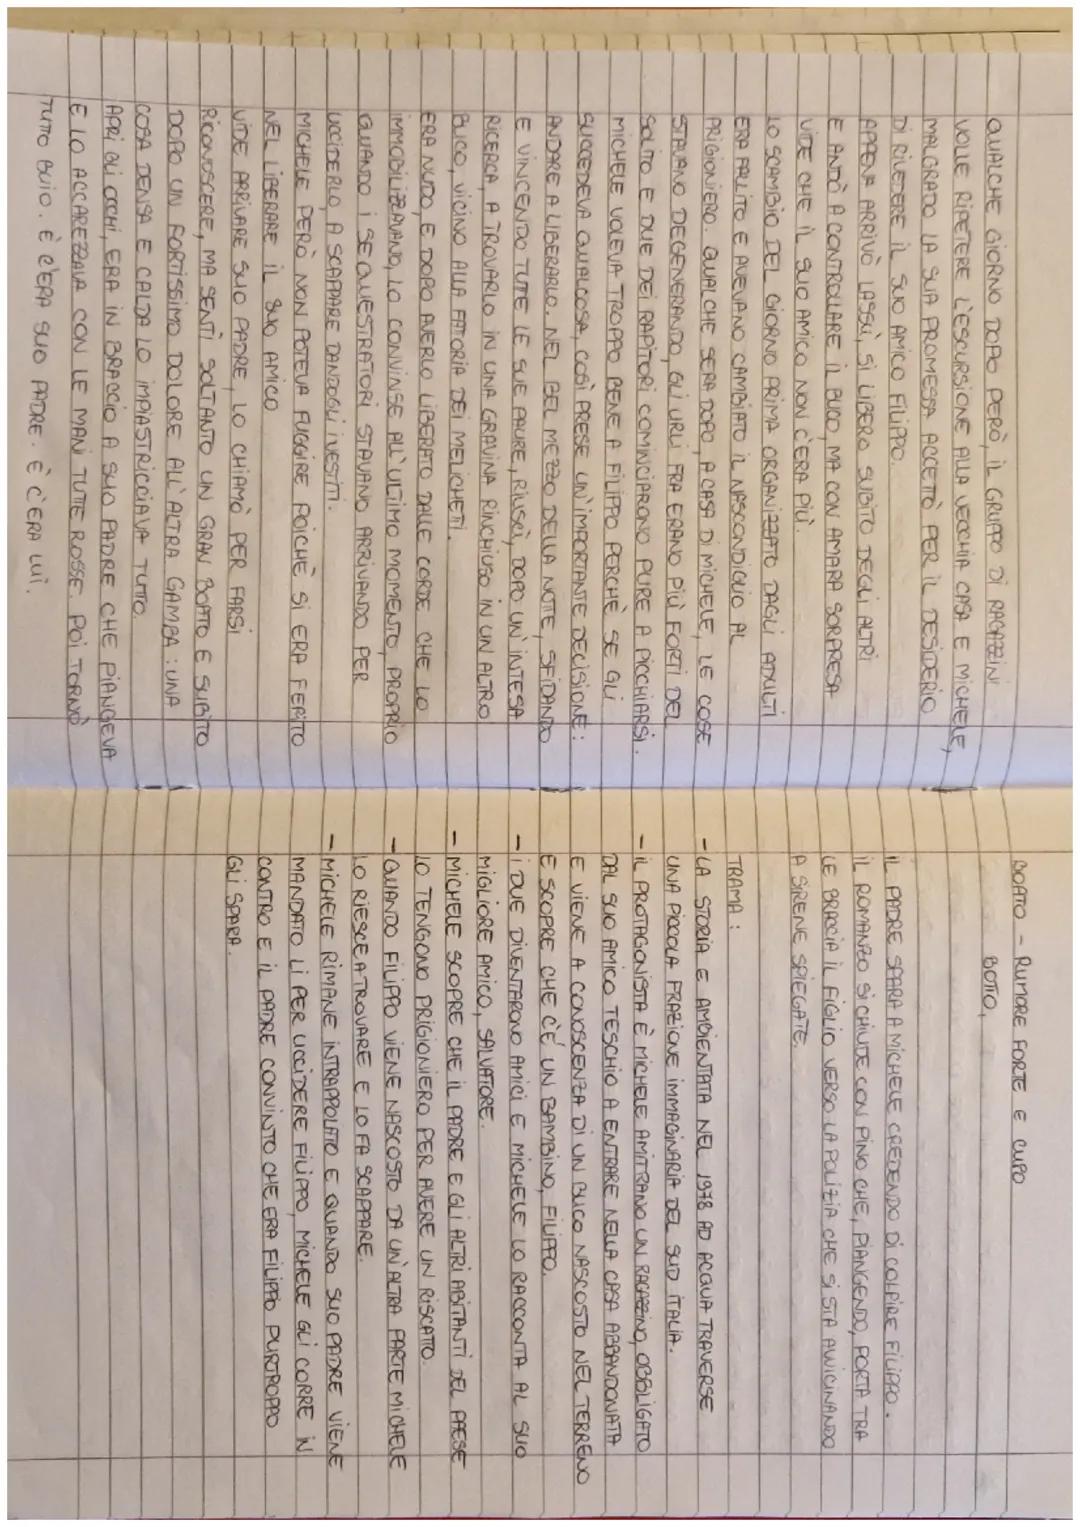 QUALCHE GIORNO DOPO PERÒ, IL GRUPPO DI RAGAZZINI
VOLLE RIPETERE L'ESCURSIONE ALLA VECCHIA CASA E MICHELE,
MALGRADO LA SUA PROMESSA ACCETTÒ PER IL DESIDERIO
DI RIVEDERE IL SUO AMICO FILIPPO.
APPENA ARRIVÒ LASSÙ, SI LIBERÒ SUBITO DEGLI ALTRI
E ANDÒ A CONTROLLARE IL BUCO, MA CON AMARA SORPRESA
VIDE CHE IL SUO AMICO NON C'ERA PIÙ.
LO SCAMBIO DEL GIORNO PRIMA ORGANIZZATO DAGLI ADULTI
ERA FALLITO E AVEVANO CAMBIATO IL NASCONDIGLIO AL
PRIGIONIERO. QUALCHE SERA DOPO, A CASA DI MICHELE, LE COSE
STAVANO DEGENERANDO, GLI URLI FRA ERANO PIÙ FORTI DEL
SOLITO E DUE DEI RAPITORI COMINCIARONO PURE A PICCHIARSI.
MICHELE VOLEVA TROPPO BENE A FILIPPO PERCHÈ SE GLI
SUCCEDEVA QUALCOSA, COSÌ PRESE UN'IMPORTANTE DECISIONE:
ANDARE A LIBERARLO. NEL BEL MEZZO DELLA NOTTE, SFIDANDO
E VINCENDO TUTTE LE SUE PAURE, RIUSCÌ, DOPO UN'INTESA
RICERCA, A TROVARLO IN UNA GRAVINA RINCHIUSO IN UN ALTRO
BUCO, VICINO ALLA FATTORIA DEI MELICHETTI.
ERA NUDO, E DOPO AVERLO LIBERATO DALLE CORDE CHE LO
IMMOBILIZZAVANO, LO CONVINSE ALL'ULTIMO MOMENTO, PROPRIO
QUANDO I SEQUESTRATORI STAVANO ARRIVANDO PER
UCCIDERLO, A SCAPPARE DANDOGLI I VESTITI.
MICHELE PERÒ NON POTEVA FUGGIRE POICHÈ SI ERA FERITO
NEL LIBERARE IL SUO AMICO
VIDE ARRIVARE SUO PADRE, LO CHIAMÒ PER FARSI
RICONOSCERE, MA SENTÌ SOLTANTO UN GRAN BOATO E SUBITO
DOPO UN FORTISSIMO DOLORE ALL'ALTRA GAMBA: UNA
COSA DENSA E CALDA LO IMPIASTRICCIAVA TUTTO.
APRÌ GLI OCCHI, ERA IN BRACCIO A SUO PADRE CHE PIANGEVA
E LO ACCAREZZAVA CON LE MANI TUTTE ROSSE. POI TORNÒ
TUTTO BUIO. E C'ERA SUO PADRE. E C'ERA LUI.
BOATO - RUMORE FORTE E CUPO
BOTTO,
IL PADRE SPARA A MICHELE CREDENDO DI COLPIRE FILIPPO.
IL ROMANZO SI CHIUDE CON PINO CHE, PIANGENDO, PORTA TRA
LE BRACCIA IL FIGLIO VERSO LA POLIZIA CHE SI STA AVVICINANDO
A SIRENE SPIEGATE.
TRAMA:
- LA STORIA E AMBIENTATA NEL 1978 AD ACQUA TRAVERSE
UNA PICCOLA FRAZIONE IMMAGINARIA DEL SUD ITALIA.
- IL PROTAGONISTA È MICHELE AMITRANO UN RAGAZZINO, OBBLIGATO
DAL SUO AMICO TESCHIO A ENTRARE NELLA CASA ABBANDONATA
E VIENE A CONOSCENZA DI UN BUCO NASCOSTO NEL TERRENO
E SCOPRE CHE C'È UN BAMBINO, FILIPPO.
- I DUE DIVENTARONO AMICI E MICHELE LO RACCONTA AL SUO
MIGLIORE AMICO, SALVATORE.
- MICHELE SCOPRE CHE IL PADRE E GLI ALTRI ABITANTI DEL PAESE
LO TENGONO PRIGIONIERO PER AVERE UN RISCATTO.
- QUANDO FILIPPO VIENE NASCOSTO DA UN'ALTRA PARTE MICHELE
LO RIESCE A TROVARE E LO FA SCAPPARE.
- MICHELE RIMANE INTRAPPOLATO E QUANDO SUO PADRE VIENE
MANDATO LÌ PER UCCIDERE FILIPPO, MICHELE GLI CORRE IN
CONTRO E IL PADRE CONVINTO CHE ERA FILIPPO PURTROPPO
GLI SPARA.